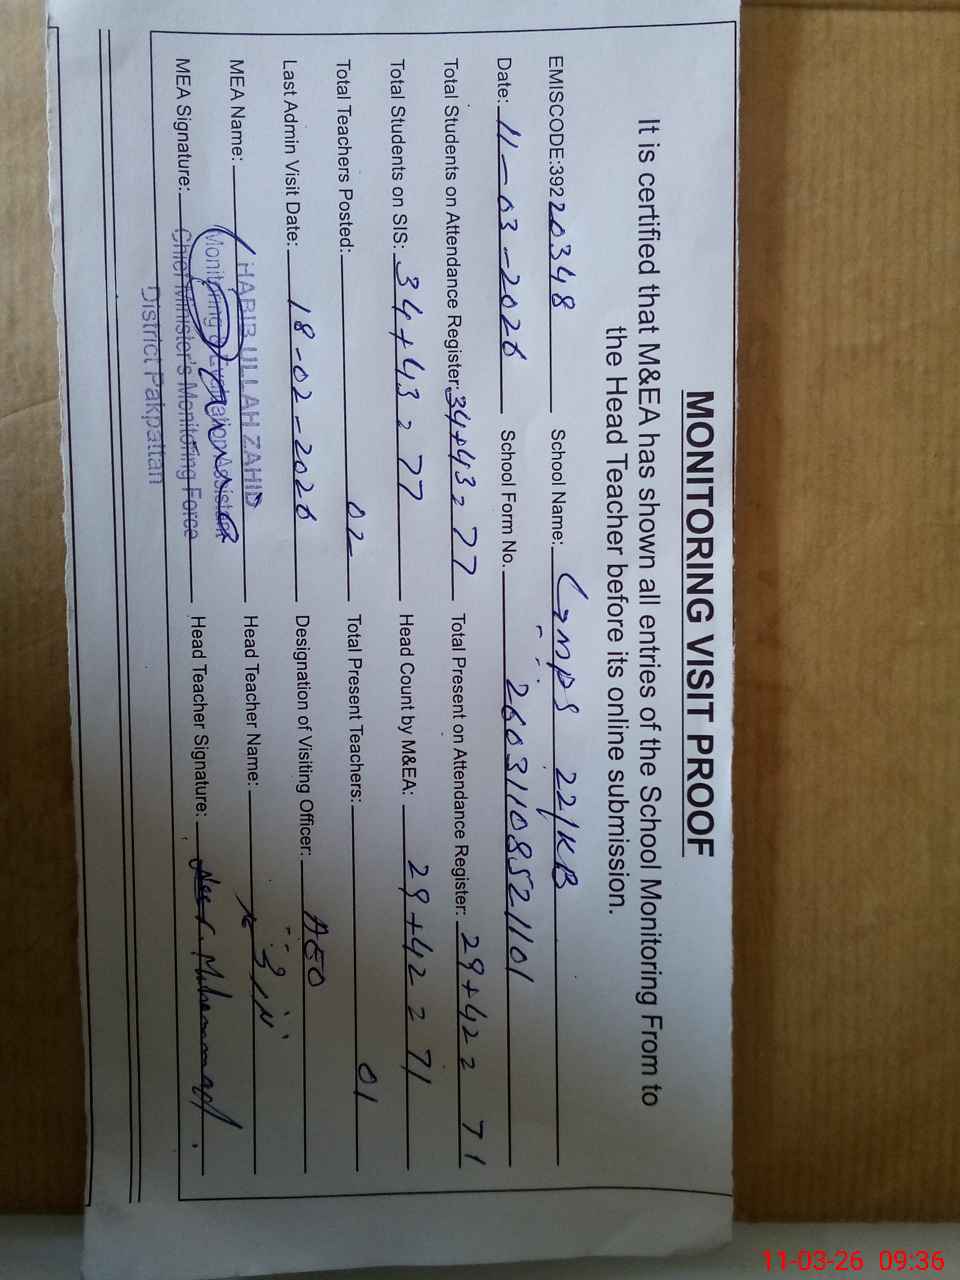 MONITORING VISIT PROOF
It is certified that M&EA has shown all entries of the School Monitoring From to
the Head Teacher before its online submission.
EMISCODE:39220348 School Name: GMPS 22/KB
Date: 11-03-2026 School Form No. 26031108521101
Total Students on Attendance Register: 34+43 = 77 Total Present on Attendance Register: 29+42 = 71
Total Students on SIS: 34+43 = 77 Head Count by M&EA: 29+42 = 71
Total Teachers Posted: 02 Total Present Teachers: 01
Last Admin Visit Date: 18-02-2026 Designation of Visiting Officer: AEO
MEA Name: HABIB ULLAH ZAHID Head Teacher Name:
Monitoring & Evaluation Assistant
MEA Signature: Chief Minister's Monitoring Force Head Teacher Signature: Muhammad
District Pakpattan
11-03-26 09:36